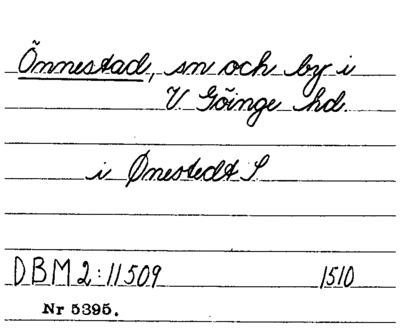 Önnestad, sn och by i
V Göinge hd.
i Ønestedt S
DBM 2:11509 1510
Nr 5395.